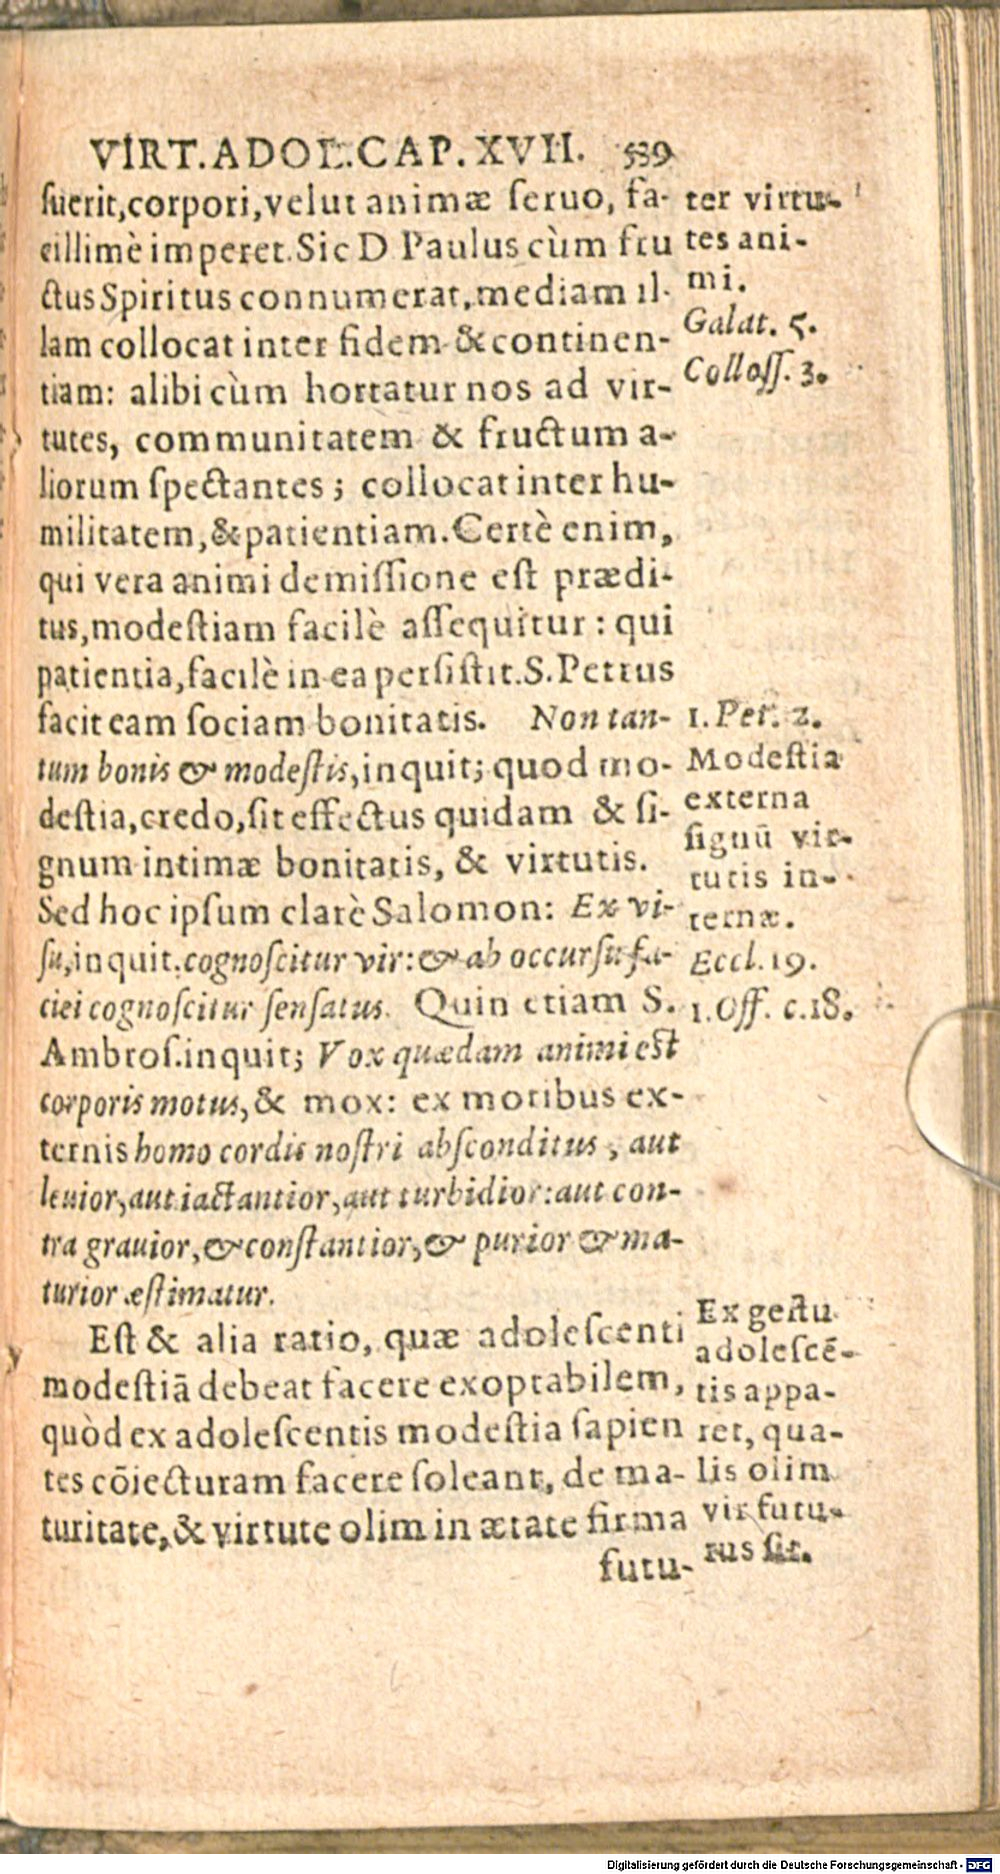 VIRT. ADOL. CAP. XVII. 539
fuerit, corpori, velut animæ seruo, fa-
cillimè imperet. Sic D Paulus cùm fru
ctus Spiritus connumerat, mediam il-
lam collocat inter fidem & continen-
tiam: alibi cùm hortatur nos ad vir-
tutes, communitatem & fructum a-
liorum spectantes; collocat inter hu-
militatem, & patientiam. Certè enim,
qui vera animi demissione est prædi-
tus, modestiam facilè assequitur: qui
patientia, facilè in ea persistit. S. Petrus
facit eam sociam bonitatis. Non tan-
tum bonis & modestis, inquit; quod mo-
destia, credo, sit effectus quidam & si-
gnum intimæ bonitatis, & virtutis.
Sed hoc ipsum clarè Salomon: Ex vi-
su, inquit, cognoscitur vir: & ab occursu fa-
ciei cognoscitur sensatus. Quin etiam S.
Ambros. inquit; Vox quædam animi est
corporis motus, & mox: ex motibus ex-
ternis homo cordis nostri absconditus, aut
leuior, aut iactantior, aut turbidior: aut con-
tra grauior, & constantior, & purior & ma-
turior æstimatur.
Est & alia ratio, quæ adolescenti
modestiã debeat facere exoptabilem,
quòd ex adolescentis modestia sapien
tes cõiecturam facere soleant, de ma-
turitate, & virtute olim in ætate firma
futu-
ter virtu-
tes ani-
mi.
Galat. 5.
Coloss. 3.
1. Pet. 2.
Modestia
externa
signũ vir-
tutis in-
ternæ.
Eccl. 19.
1. Off. c. 18.
Ex gestu
adolescẽ-
tis appa-
ret, qua-
lis olim
vir futu-
rus sit.
Digitalisierung gefördert durch die Deutsche Forschungsgemeinschaft - DFG